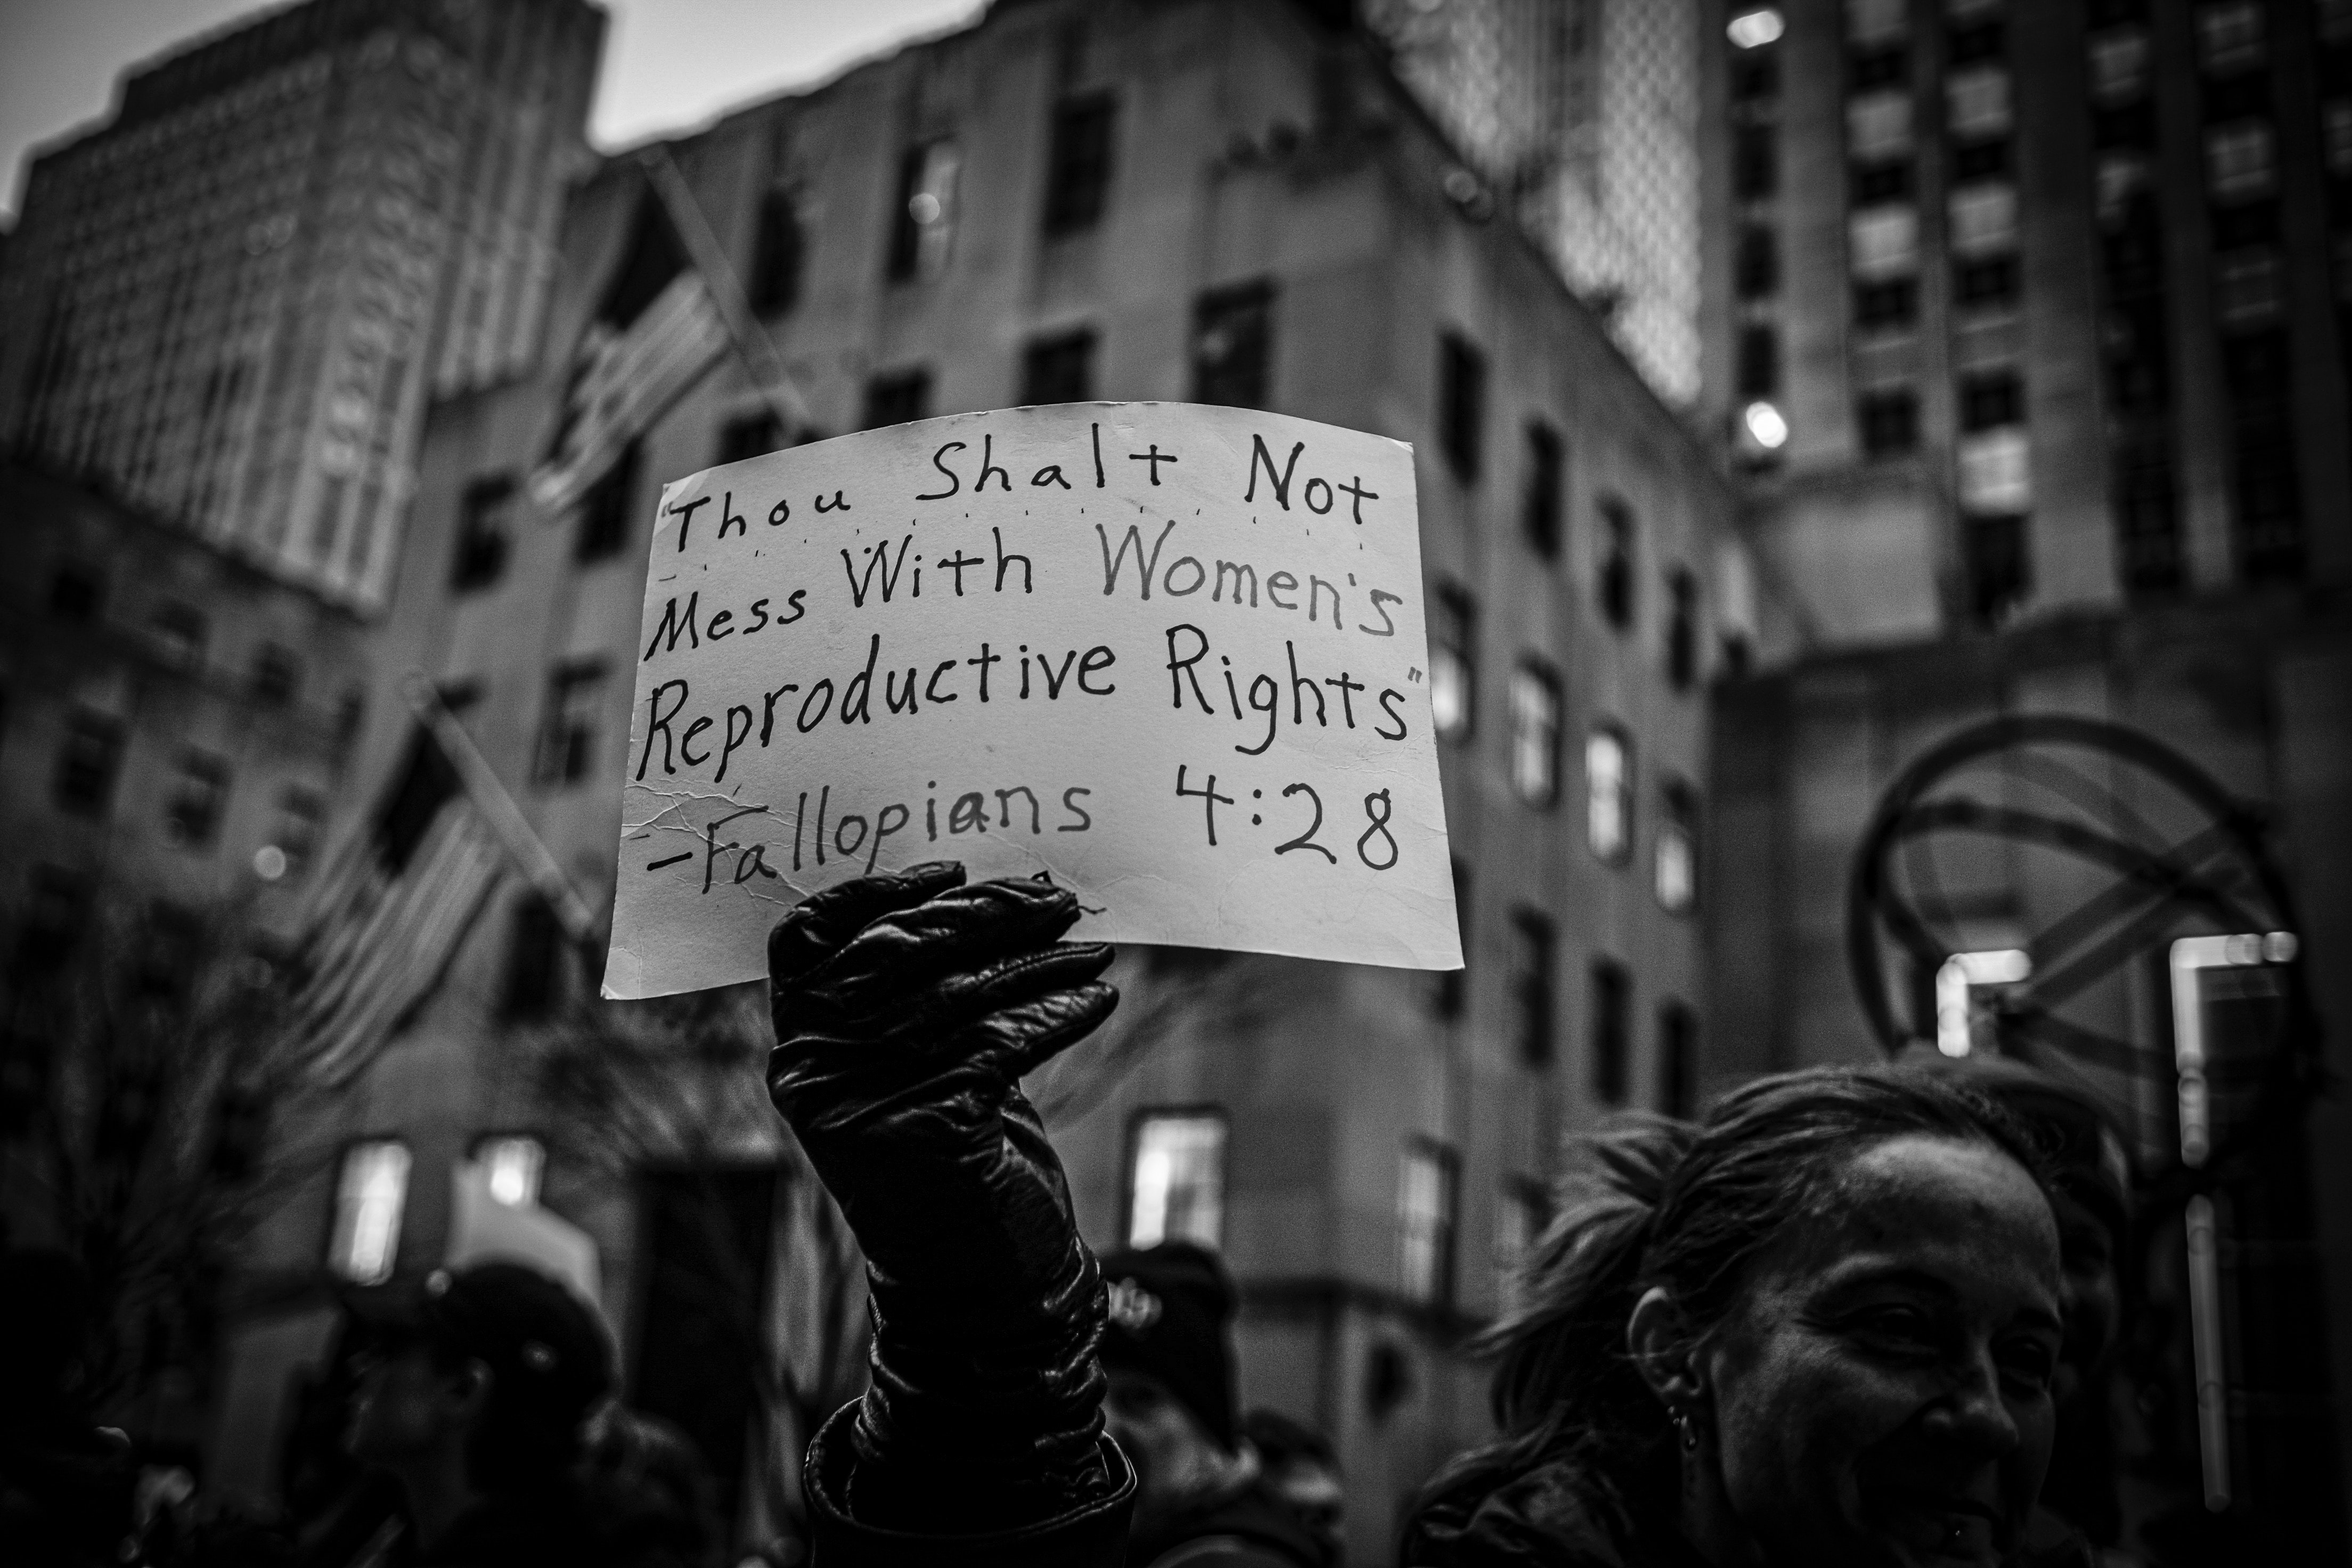 "Thou Shalt Not
Mess With Women's
Reproductive Rights"
-Fallopians 4:28